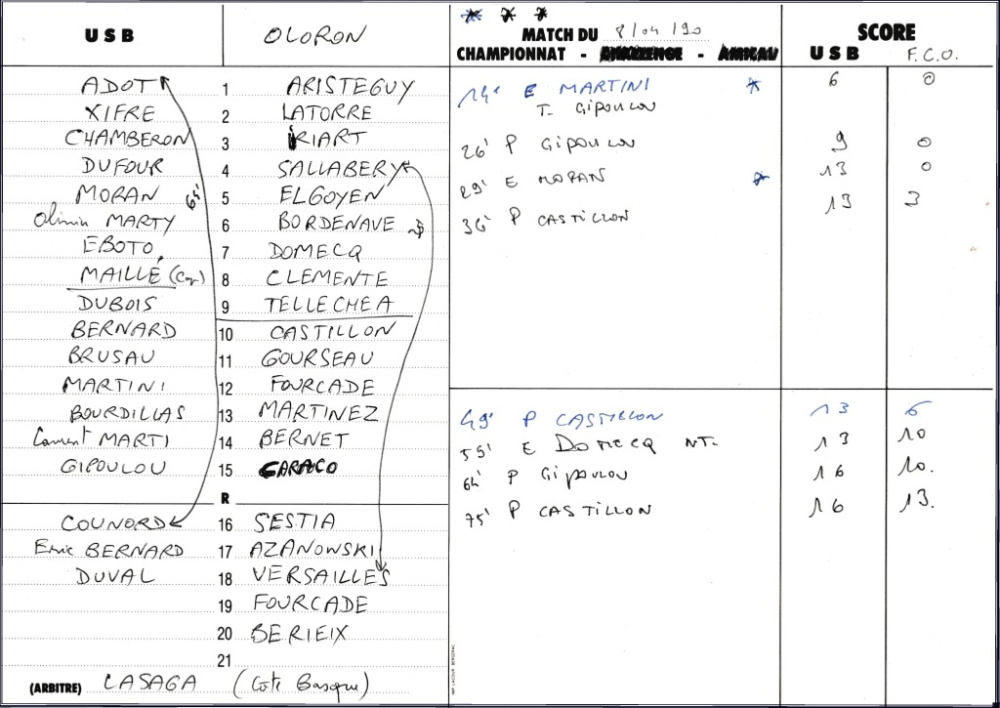 USB OLORON
ADOT 1 ARISTEGUY
XIFRE 2 LATORRE
CHAMBERON 3 IRIART
DUFOUR 4 SALLABERY
MORAN 5 ELGOYEN
65'
Olivier MARTY 6 BORDENAVE
EBOTO 7 DOMECQ
MAILLÉ (Cap) 8 CLEMENTE
DUBOIS 9 TELLECHEA
BERNARD 10 CASTILLON
BRUSAU 11 GOURSEAU
MARTINI 12 FOURCADE
BOURDILLAS 13 MARTINEZ
Laurent MARTI 14 BERNET
GIPOULOU 15 CARACO
R
COUNORD 16 SESTIA
Eric BERNARD 17 AZANOWSKI
DUVAL 18 VERSAILLES
19 FOURCADE
20 BERIEIX
21
(ARBITRE) LASAGA (Cote Basque)
* * *
MATCH DU 8/04/90
CHAMPIONNAT - CHALLENGE - AMICAL
SCORE
USB F.C.O.
14' E MARTINI * 6 0
T. Gipoulou
26' P Gipoulou 9 0
29' E MORAN * 13 0
36' P CASTILLON 13 3
49' P CASTILLON 13 6
55' E DOMECQ NT. 13 10
64' P Gipoulou 16 10.
75' P CASTILLON 16 13.